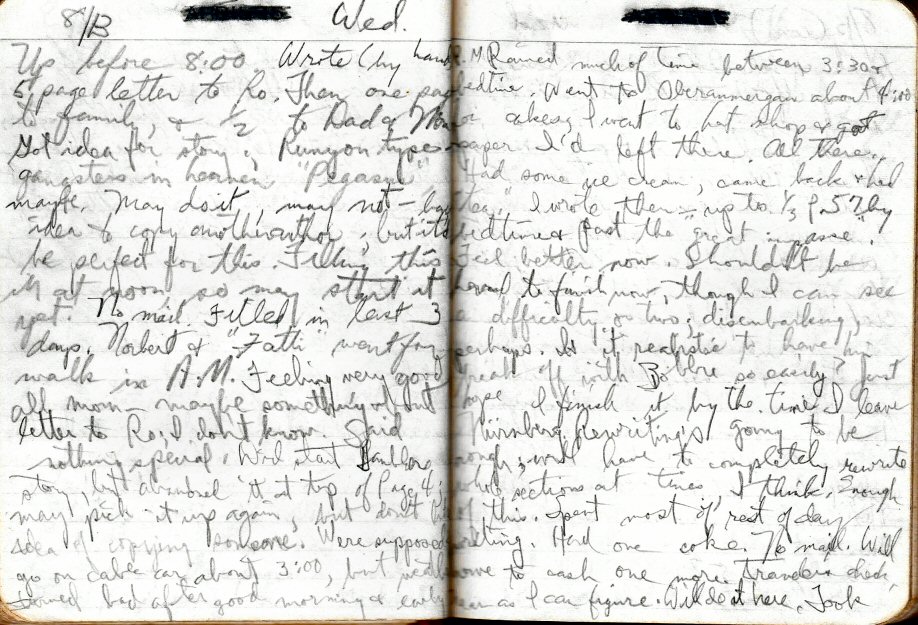 8/13
Wed.
Up before 8:00 Wrote (by hand)
5 page letter to Ro. Then one page
to family, & 1/2 to Dad &
Got idea for story, Runyon type
gangsters in heaven "Pegasus"
maybe. May do it, may not –
idea to copy another author, but it'd
be perfect for this. Filling this
in at noon, so may start it
yet. No mail. Filled in last 3
days. Norbert & "Fatti" went for
walk in A.M. Feeling very good
all morn – maybe something of
letter to Ro, I don't know. Said
nothing special. Did start
story, but abandoned it at top of Page 4;
may pick it up again, but don't like
idea of copying someone. Were supposed
go on cable car about 3:00, but
turned bad after good morning & early
P.M. Rained much of time between 3:30 &
bedtime. Went to Oberammergau about 4:00
cakes; I went to hat shop & got
paper I'd left there. All there.
Had some ice cream, came back & had
tea. I wrote then – up to 1/3 P. 57 by
bedtime & past the "great impasse".
Feel better now. Shouldn't be
hard to finish now, though I can see
a difficulty or two; disembarking,
perhaps. Is it realistic to have him
break off with Bobbie so easily? Just
hope I finish it by the time I leave
Nürnberg. Rewriting's going to be
rough; will have to completely rewrite
whole sections at times, I think. Enough
of this. Spent most of rest of day
writing. Had one coke. No mail. Will
have to cash one more travelers check,
near as I can figure. Will do it here. Took